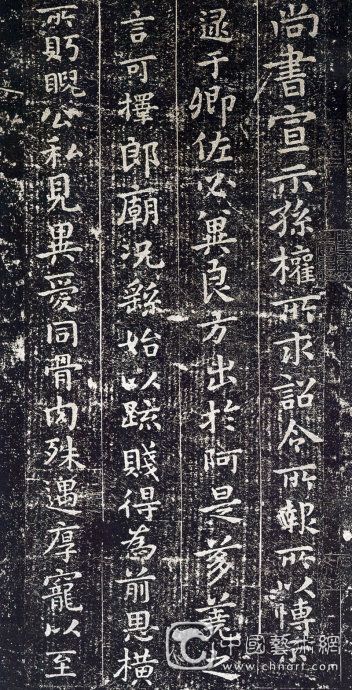 尚書宣示孫權所求詔令所報所以博示
逮于卿佐必冀良方出於阿是芻蕘之
言可擇郎廟況繇始以疏賤得為前恩橫
所眄睨公私見異愛同骨肉殊遇厚寵以至
中國藝術網
www.chnart.com